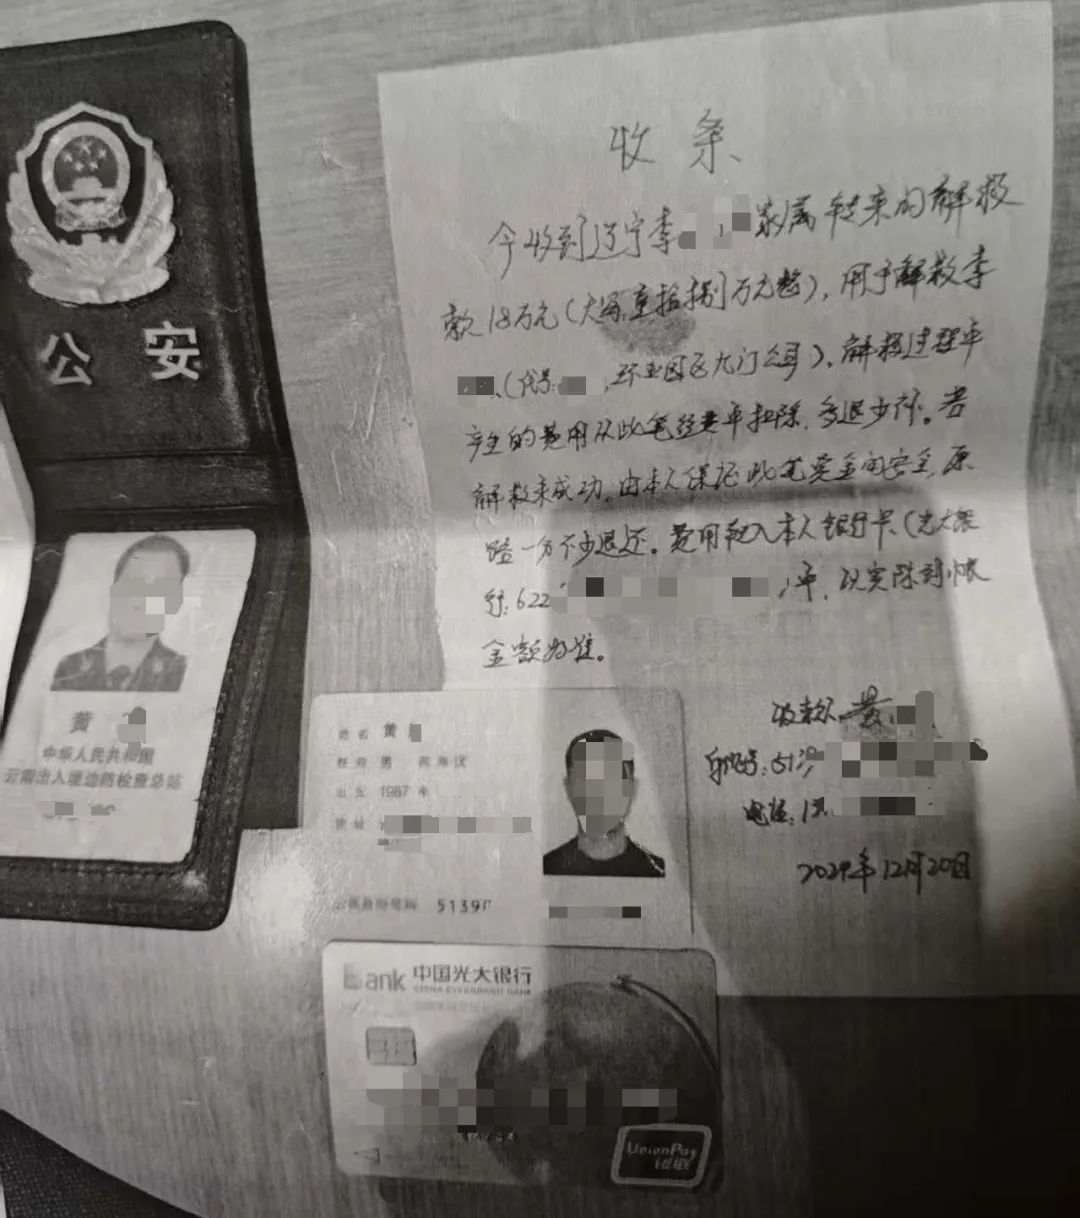 公安
黄
中华人民共和国
云南出入境边防检查总站
收条
今收到辽宁李 家属转来的解救
款18万元(大写:壹拾捌万元整),用于解救李
(代号: 环亚园区九门公司),解救过程中
产生的费用从此笔经费中扣除,多退少补。若
解救未成功,由本人保证此笔资金的安全,原
路一分不少退还。费用转入本人银行卡(光大银
行:622 )中,以实际到帐
金额为准。
收款人:黄
身份证号:513
电话:1
2024年12月20日
姓名 黄
性别 男 民族 汉
出生 1987 年
住址
公民身份号码 5139
Bank 中国光大银行
CHINA EVERBRIGHT BANK
UnionPay
银联